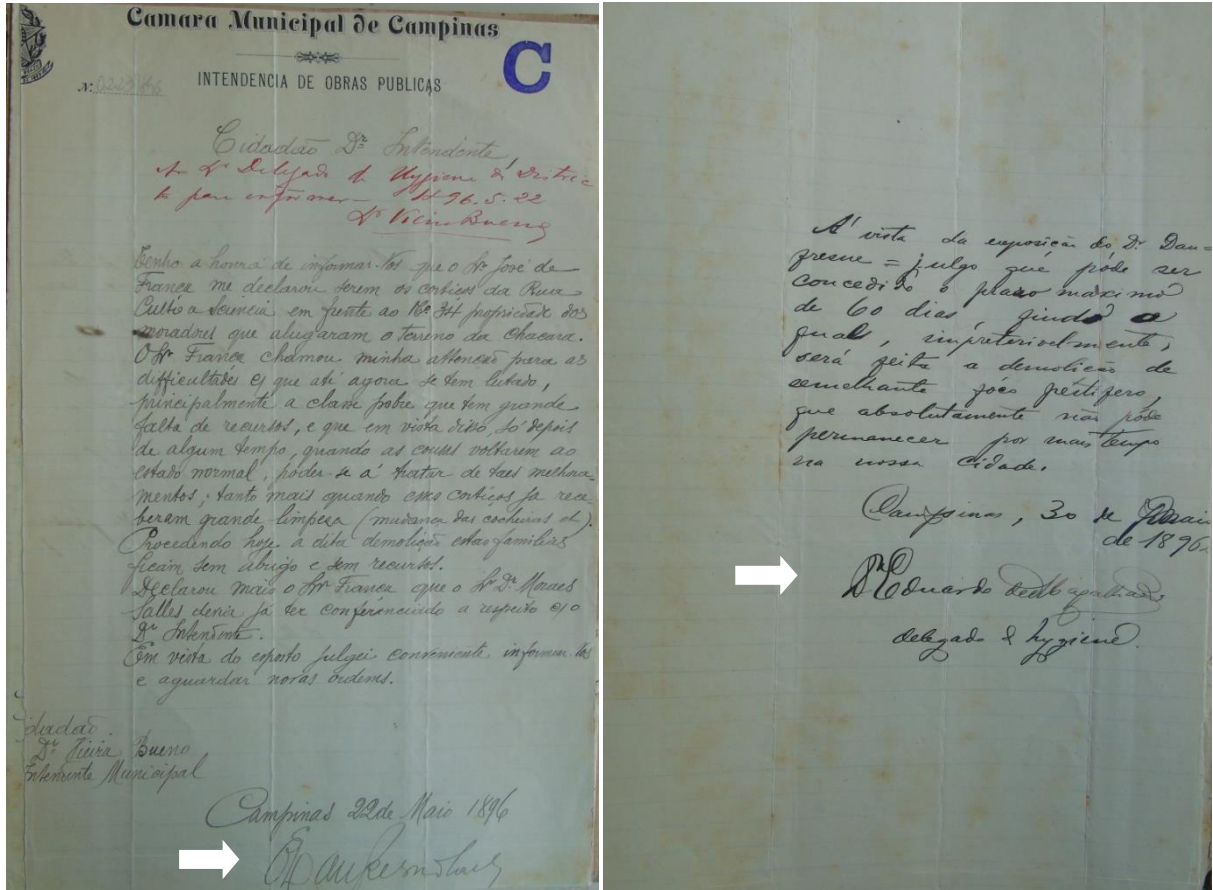 Camara Municipal de Campinas
C
INTENDENCIA DE OBRAS PUBLICAS
Nº
Cidadão Dr. Intendente,
Ao Dr Delegado de Hygiene do Distric
to para informar — 96.5.22
Dr Vieira Bueno
Tenho a honra de informar-vos que o Sr José de
França me declarou serem os corticos da Rua
Culto a Sciencia em frente ao Nº 34 propriedade dos
moradores que alugaram o terreno da Chacara.
O Sr França chamou minha attenção para as
difficuldades que até agora se tem lutado,
principalmente a classe pobre que tem grande
falta de recursos, e que em vista disso, só depois
de algum tempo, quando as couses voltarem ao
estado normal, poder-se á tratar de taes melhora-
mentos; tanto mais quando esses corticos ja rece-
beram grande limpesa (mudança das cocheiras et).
Procedendo hoje a dita demolição estas familias
ficam sem abrigo e sem recursos.
Declarou mais o Sr França que o Sr Dr Moraes
Salles devia já ter conferenciado a respeito c/ o
Dr Intendente.
Em vista do exposto julguei conveniente informar-vos
e aguardar novas ordens.
dadão
Dr Vieira Bueno
Intendente Municipal
Campinas 22 de Maio 1896
A' vista da exposição do Dr. Dau-
fresne = julgo que póde ser
concedido o praso maximo
de 60 dias, findo o
qual, impreterivelmente,
será feita a demolição de
semelhante fóco péstifero,
que absolutamente não póde
permanecer por mais tempo
na nossa cidade.
Campinas, 30 de Maio
de 1896
Dr Eduardo de Magalhães
delegado d hygiene.